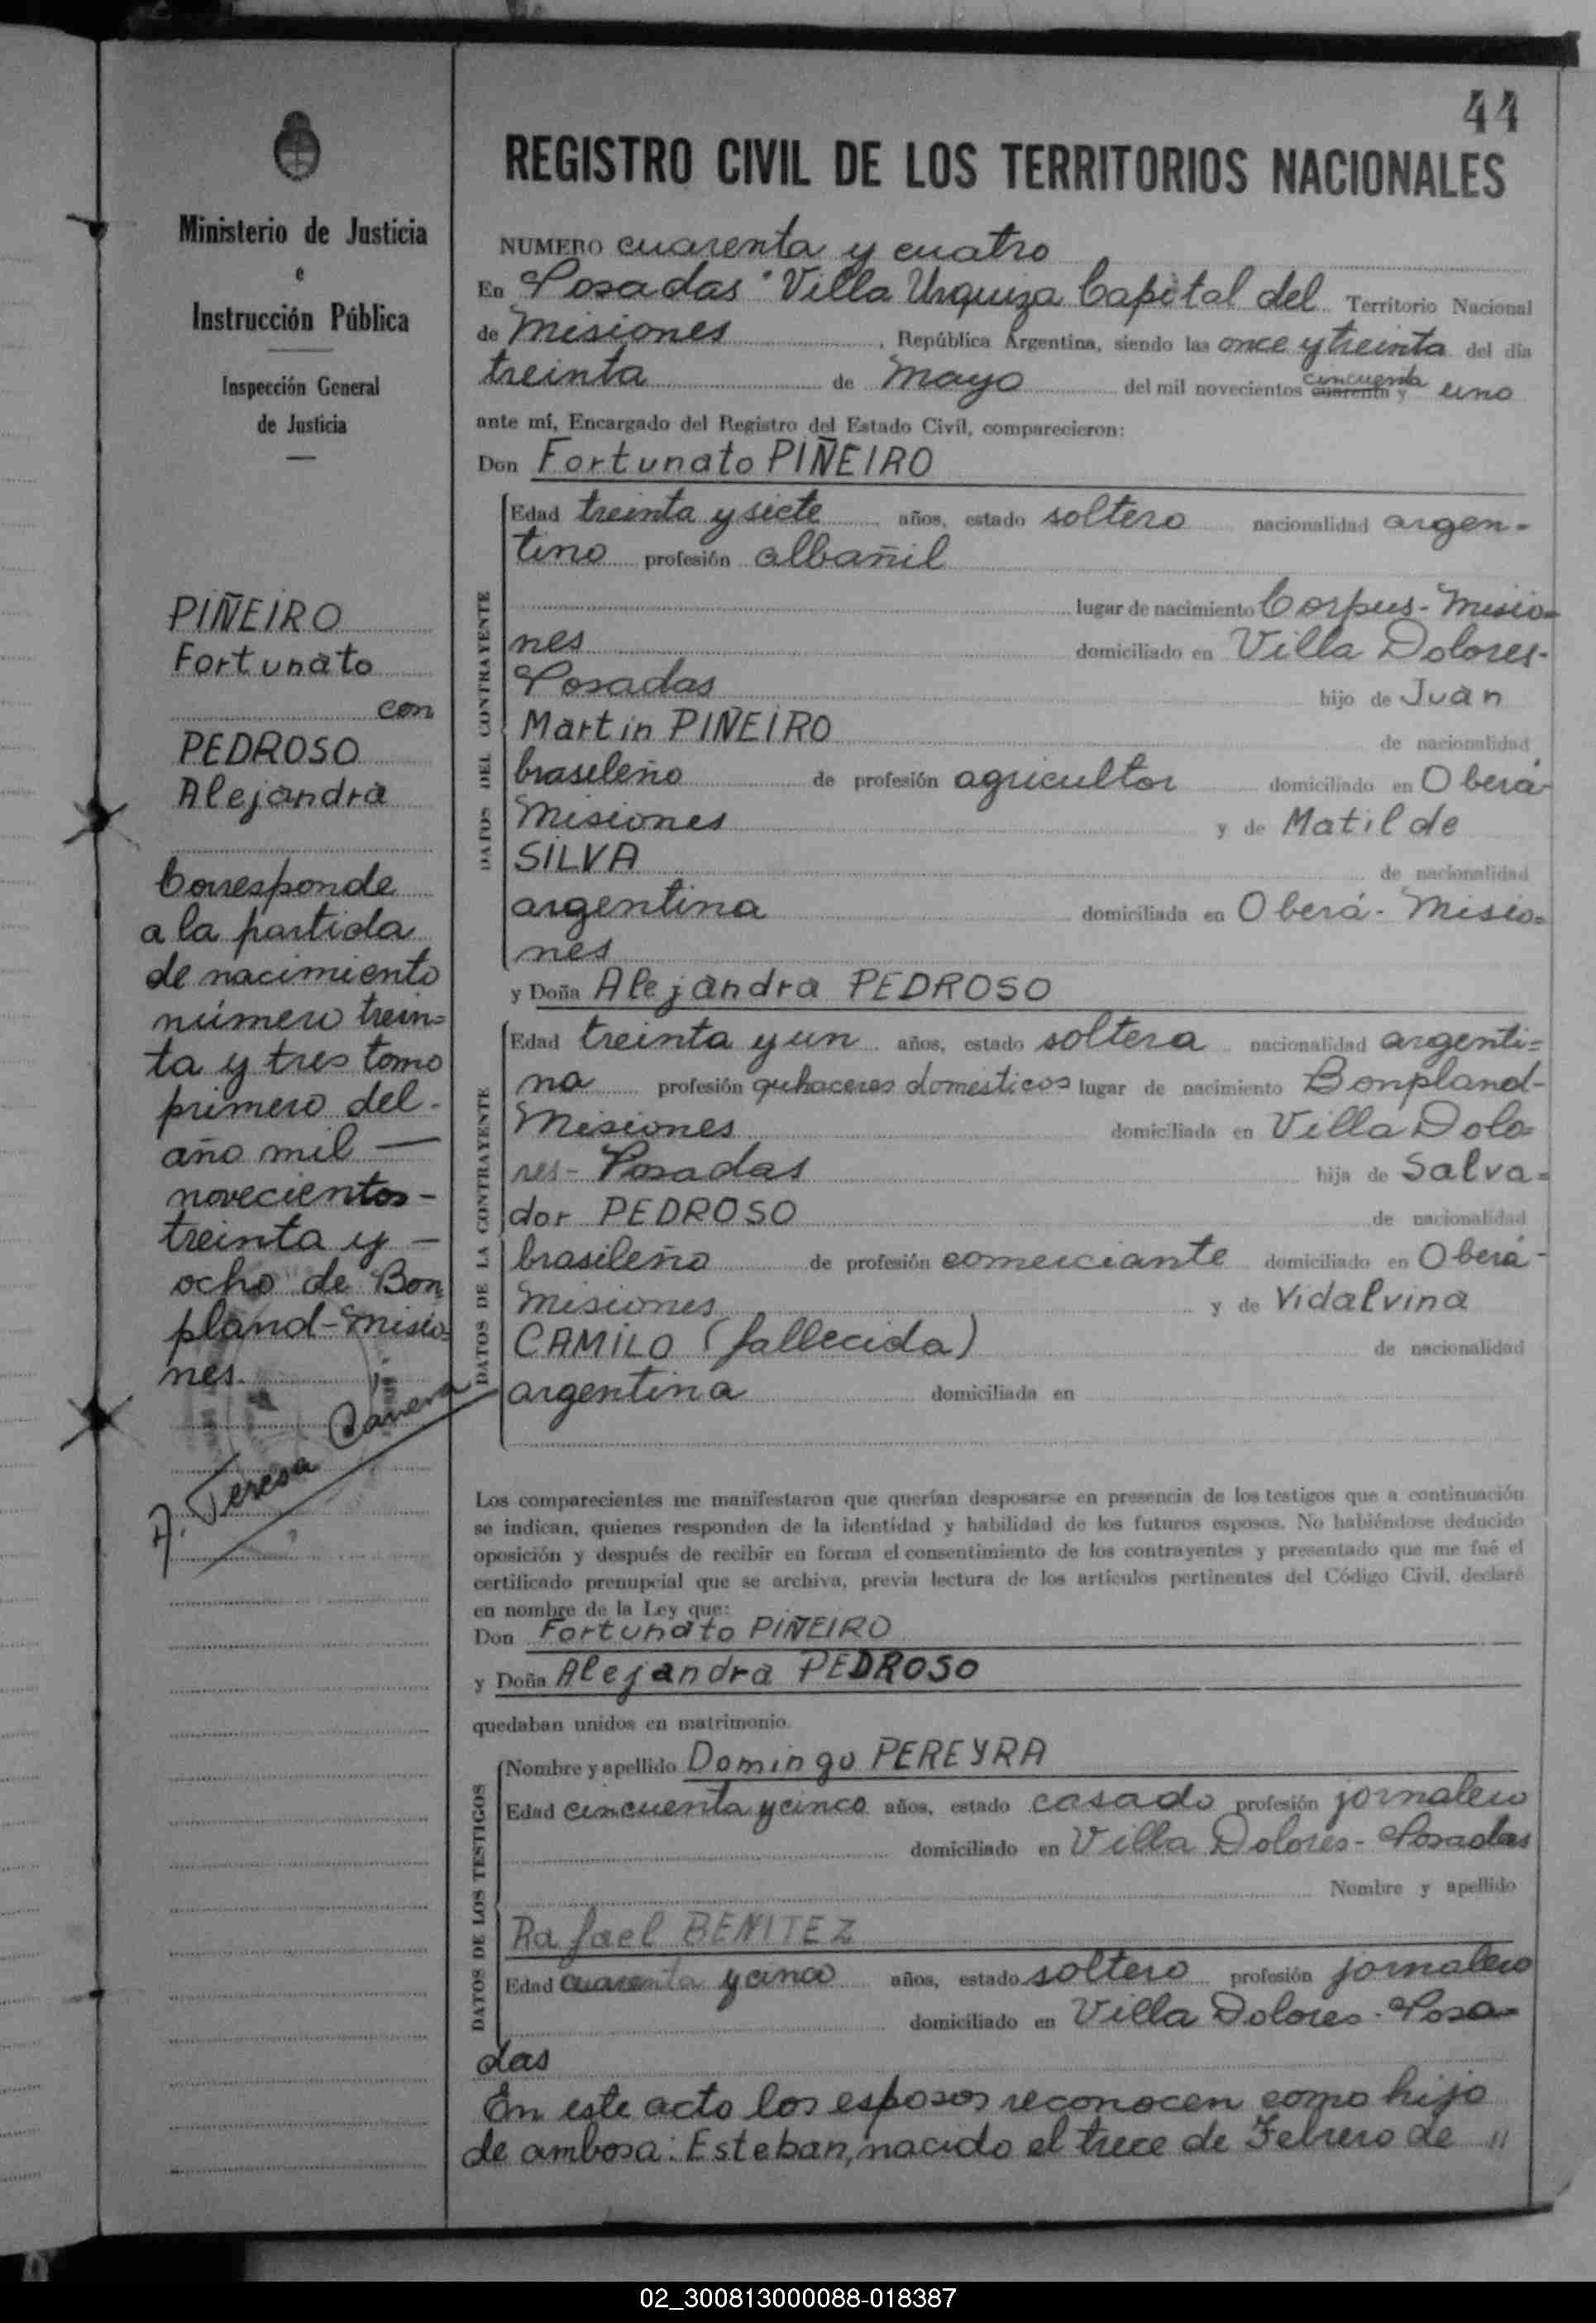 44
REGISTRO CIVIL DE LOS TERRITORIOS NACIONALES
Ministerio de Justicia
e
Instrucción Pública
Inspección General
de Justicia
PIÑEIRO
Fortunato
con
PEDROSO
Alejandra
Corresponde
a la partida
de nacimiento
número trein=
ta y tres tomo
primero del -
año mil —
novecientos -
treinta y -
ocho de Bon
pland - Misio=
nes.
A. Teresa
NUMERO cuarenta y cuatro
En Posadas "Villa Urquiza Capital del Territorio Nacional
de Misiones, República Argentina, siendo las once y treinta del día
treinta de Mayo del mil novecientos cincuenta cuarenta y uno
ante mí, Encargado del Registro del Estado Civil, comparecieron:
Don Fortunato PIÑEIRO
DATOS DEL CONTRAYENTE
Edad treinta y siete años, estado soltero nacionalidad argen=
tino profesión albañil
lugar de nacimiento Corpus - Misio=
nes domiciliado en Villa Dolores -
Posadas hijo de Juan
Martin PIÑEIRO de nacionalidad
brasileño de profesión agricultor domiciliado en Oberá -
Misiones y de Matilde
SILVA de nacionalidad
argentina domiciliada en Oberá - Misio=
nes
y Doña Alejandra PEDROSO
DATOS DE LA CONTRAYENTE
Edad treinta y un años, estado soltera nacionalidad argenti=
na profesión quhaceres domésticos lugar de nacimiento Bonpland -
Misiones domiciliada en Villa Dolo=
res - Posadas hija de Salva=
dor PEDROSO de nacionalidad
brasileño de profesión comerciante domiciliado en Oberá -
Misiones y de Vidalvina
CAMILO (fallecida) de nacionalidad
argentina domiciliada en
Los comparecientes me manifestaron que querían desposarse en presencia de los testigos que a continuación
se indican, quienes responden de la identidad y habilidad de los futuros esposos. No habiéndose deducido
oposición y después de recibir en forma el consentimiento de los contrayentes y presentado que me fué el
certificado prenupcial que se archiva, previa lectura de los artículos pertinentes del Código Civil, declaré
en nombre de la Ley que:
Don Fortunato PIÑEIRO
y Doña Alejandra PEDROSO
quedaban unidos en matrimonio.
DATOS DE LOS TESTIGOS
Nombre y apellido Domingo PEREYRA
Edad cincuenta y cinco años, estado casado profesión jornalero
domiciliado en Villa Dolores - Posadas
Nombre y apellido
Rafael BENITEZ
Edad cuarenta y cinco años, estado soltero profesión jornalero
domiciliado en Villa Dolores - Posa=
das
En este acto los esposos reconocen como hijo
de ambosa: Esteban, nacido el trece de Febrero de "
02_300813000088-018387